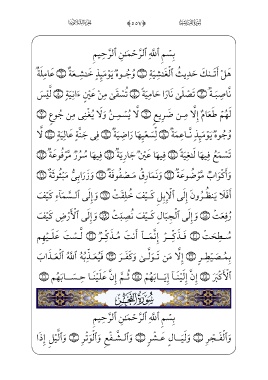 بِسْمِ اللَّهِ الرَّحْمَٰنِ الرَّحِيمِ
هَلْ أَتَىٰكَ حَدِيثُ الْغَٰشِيَةِ ۝ وُجُوهٌ يَوْمَئِذٍ خَٰشِعَةٌ ۝ عَامِلَةٌ
نَّاصِبَةٌ ۝ تَصْلَىٰ نَارًا حَامِيَةً ۝ تُسْقَىٰ مِنْ عَيْنٍ ءَانِيَةٍ ۝ لَّيْسَ
لَهُمْ طَعَامٌ إِلَّا مِن ضَرِيعٍ ۝ لَّا يُسْمِنُ وَلَا يُغْنِي مِن جُوعٍ ۝
وُجُوهٌ يَوْمَئِذٍ نَّاعِمَةٌ ۝ لِّسَعْيِهَا رَاضِيَةٌ ۝ فِي جَنَّةٍ عَالِيَةٍ ۝ لَّا
تَسْمَعُ فِيهَا لَٰغِيَةً ۝ فِيهَا عَيْنٌ جَارِيَةٌ ۝ فِيهَا سُرُرٌ مَّرْفُوعَةٌ ۝
وَأَكْوَابٌ مَّوْضُوعَةٌ ۝ وَنَمَارِقُ مَصْفُوفَةٌ ۝ وَزَرَابِيُّ مَبْثُوثَةٌ ۝
أَفَلَا يَنظُرُونَ إِلَى الْإِبِلِ كَيْفَ خُلِقَتْ ۝ وَإِلَى السَّمَاءِ كَيْفَ
رُفِعَتْ ۝ وَإِلَى الْجِبَالِ كَيْفَ نُصِبَتْ ۝ وَإِلَى الْأَرْضِ كَيْفَ
سُطِحَتْ ۝ فَذَكِّرْ إِنَّمَا أَنتَ مُذَكِّرٌ ۝ لَّسْتَ عَلَيْهِم
بِمُصَيْطِرٍ ۝ إِلَّا مَن تَوَلَّىٰ وَكَفَرَ ۝ فَيُعَذِّبُهُ اللَّهُ الْعَذَابَ
الْأَكْبَرَ ۝ إِنَّ إِلَيْنَا إِيَابَهُمْ ۝ ثُمَّ إِنَّ عَلَيْنَا حِسَابَهُم ۝
سُورَةُ الْفَجْرِ
بِسْمِ اللَّهِ الرَّحْمَٰنِ الرَّحِيمِ
وَالْفَجْرِ ۝ وَلَيَالٍ عَشْرٍ ۝ وَالشَّفْعِ وَالْوَتْرِ ۝ وَالَّيْلِ إِذَا